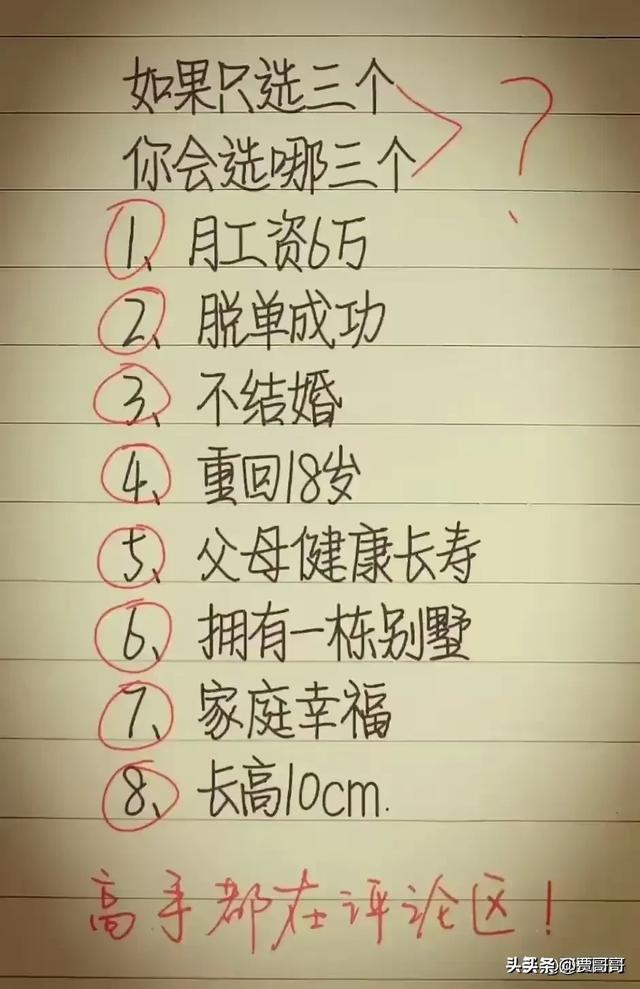 如果只选三个
你会选哪三个
?
1、月工资6万
2、脱单成功
3、不结婚
4、重回18岁
5、父母健康长寿
6、拥有一栋别墅
7、家庭幸福
8、长高10cm.
高手都在评论区!
头条@贾哥哥